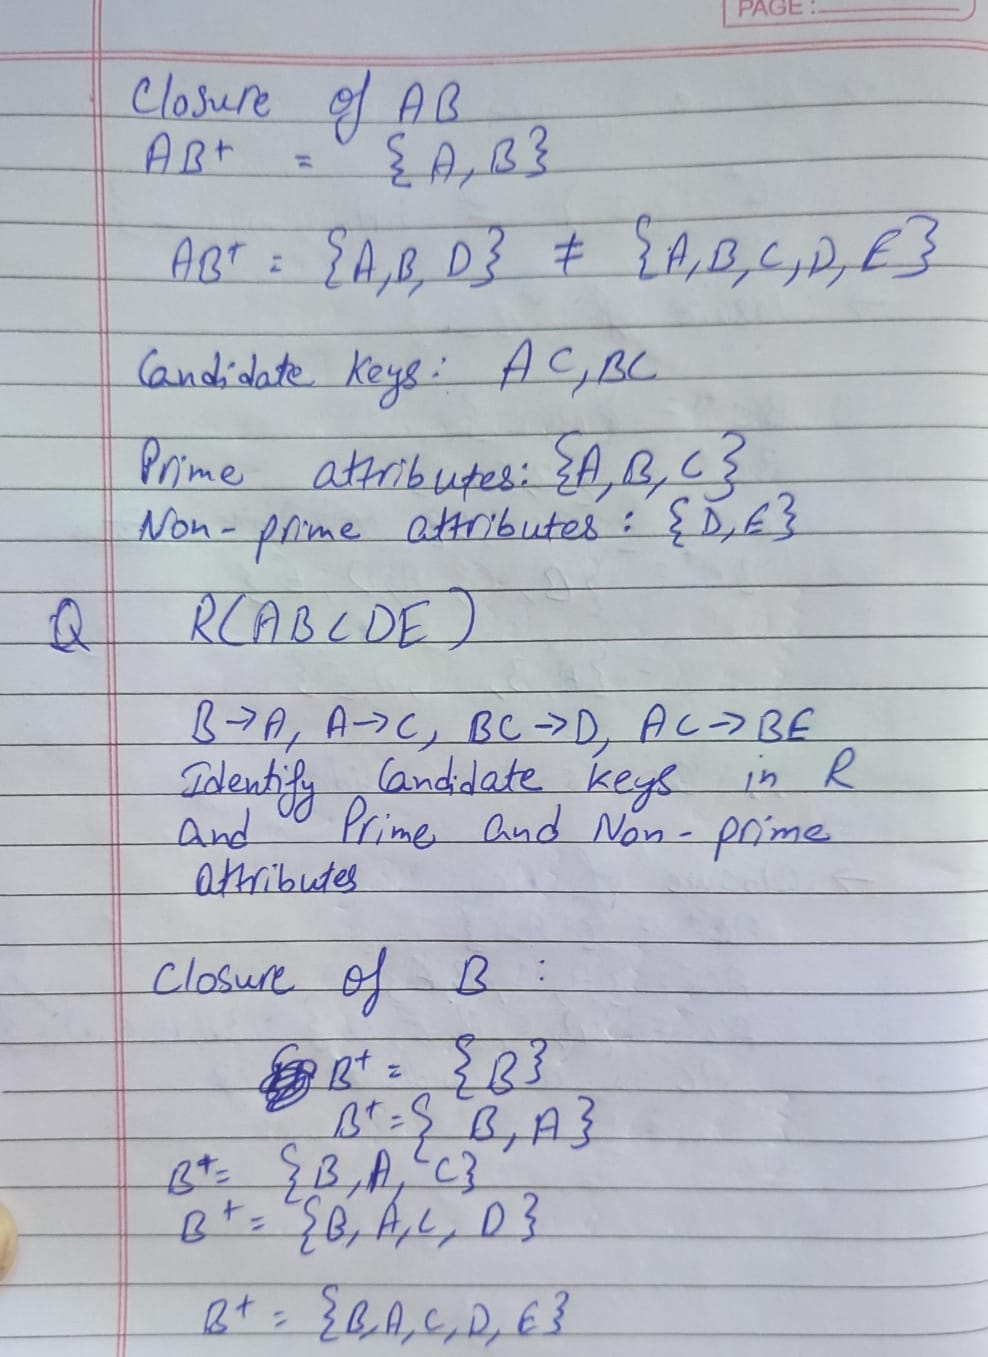 PAGE:
Closure of AB
AB+ = {A, B}
AB+ = {A, B, D} ≠ {A, B, C, D, E}
Candidate Keys: AC, BC
Prime attributes: {A, B, C}
Non-prime attributes: {D, E}
Q R(ABCDE)
B→A, A→C, BC→D, AC→BE
Identify Candidate keys in R
and Prime and Non-prime
attributes
Closure of B :
B+ = {B}
B+ = { B, A}
B+ = {B, A, C}
B+ = {B, A, C, D}
B+ = {B, A, C, D, E}